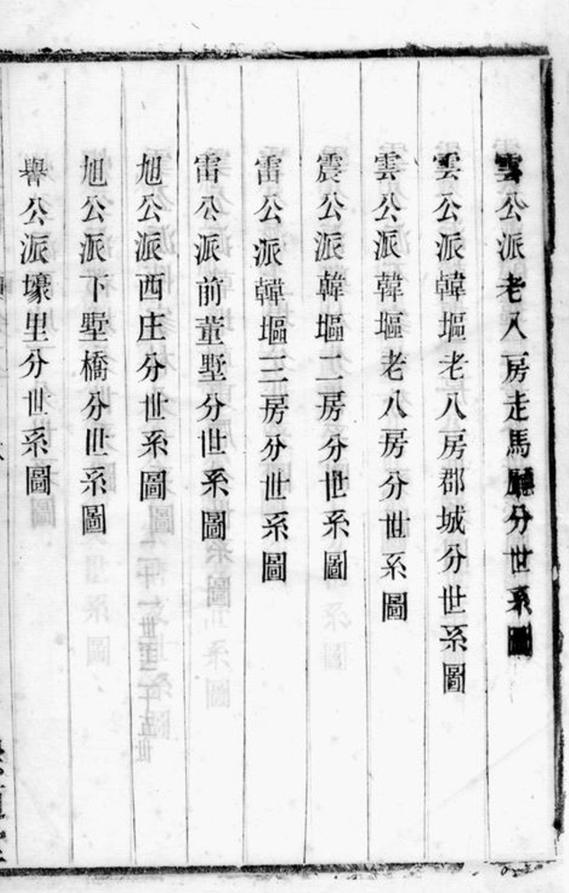 雲公派老八房走馬廳分世系圖
雲公派韓塸老八房郡城分世系圖
雲公派韓塸老八房分世系圖
震公派韓塸二房分世系圖
雷公派韓塸三房分世系圖
雷公派前葷墅分世系圖
旭公派西庄分世系圖
旭公派下墅橋分世系圖
譽公派壕里分世系圖